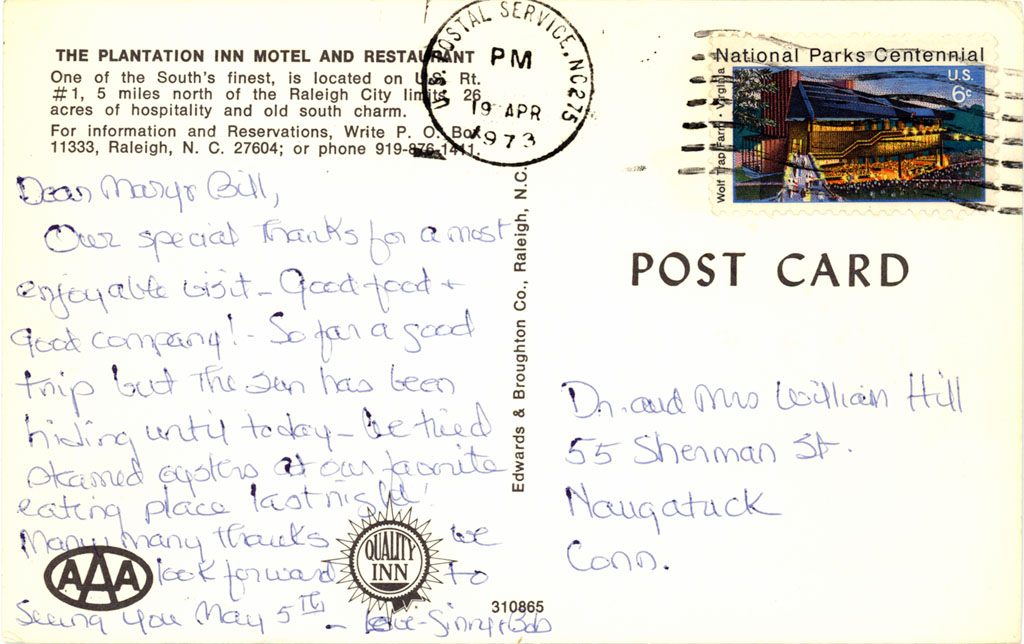 THE PLANTATION INN MOTEL AND RESTAURANT
One of the South's finest, is located on U.S. Rt.
#1, 5 miles north of the Raleigh City limits. 26
acres of hospitality and old south charm.
For information and Reservations, Write P. O. Box
11333, Raleigh, N. C. 27604; or phone 919-876-1411.
Dear Mary & Bill,
Our special thanks for a most
enjoyable visit - Good food +
good company! - So far a good
trip but the sun has been
hiding until today - We tried
steamed oysters at our favorite
eating place last night!
Many many thanks we
look forward to
seeing you May 5th - Love - Ginny & Bob
AAA
QUALITY
INN
310865
Edwards & Broughton Co., Raleigh, N.C.
U.S. POSTAL SERVICE, NC 275
PM
19 APR
1973
National Parks Centennial
U.S.
6c
Wolf Trap Farm - Virginia
POST CARD
Dr. and Mrs William Hill
55 Sherman St.
Naugatuck
Conn.